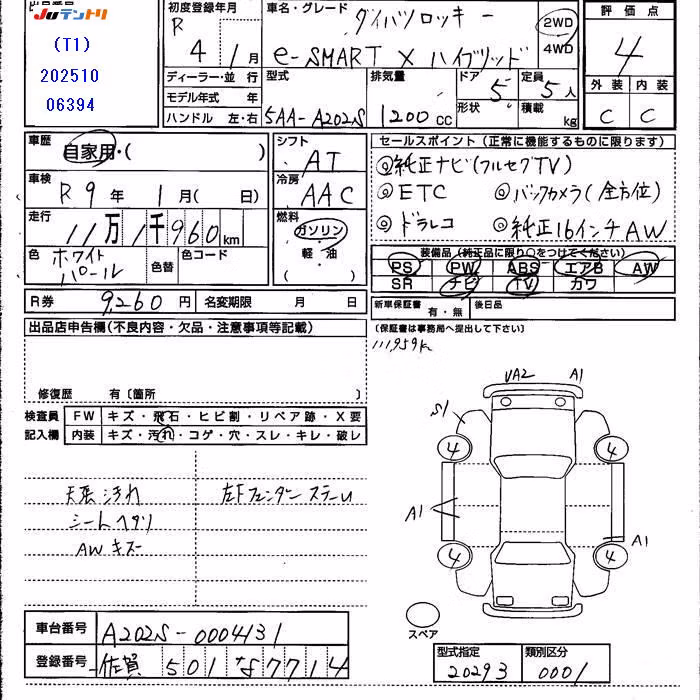 出品番号
JUテントリ
(T1)
202510
06394
初度登録年月
R 4 1月
ディーラー・並行
モデル年式 年
ハンドル 左・右
車名・グレード
ダイハツロッキー
e-SMART X ハイブリッド
2WD
4WD
型式
5AA-A202S
排気量
1200 cc
ドア 5
形状
定員 5人
積載 kg
評価点
4
外装 内装
C C
車歴 自家用・( )
車検 R9年 1月( 日)
走行 11万1千960km
色 ホワイトパール
色替 色コード
シフト AT
冷房 AAC
燃料
ガソリン
軽・油
( )
R券 9,260円 名変期限 月 日
セールスポイント(正常に機能するものに限ります)
◎純正ナビ(フルセグTV)
◎ETC ◎バックカメラ(全方位)
◎ドラレコ ◎純正16インチAW
装備品(純正品に限り○をつけてください)
PS PW ABS エアB AW
SR ナビ TV カワ
新車保証書 有・無 後日品
(保証書は事務局へ提出して下さい)
111959K
出品店申告欄(不良内容・欠品・注意事項等記載)
修復歴 有〔箇所 〕
検査員記入欄
FW キズ・飛石・ヒビ割・リペア跡・X要
内装 キズ・汚れ・コゲ・穴・スレ・キレ・破レ
天張汚れ 左Fフェンダー
シートヘタリ
AWキズ
VA2 A1
S1
4 4
A1
A1
4 4
スペア
車台番号 A202S-0004131
登録番号 佐賀 501 な 7714
型式指定 類別区分
20293 0001